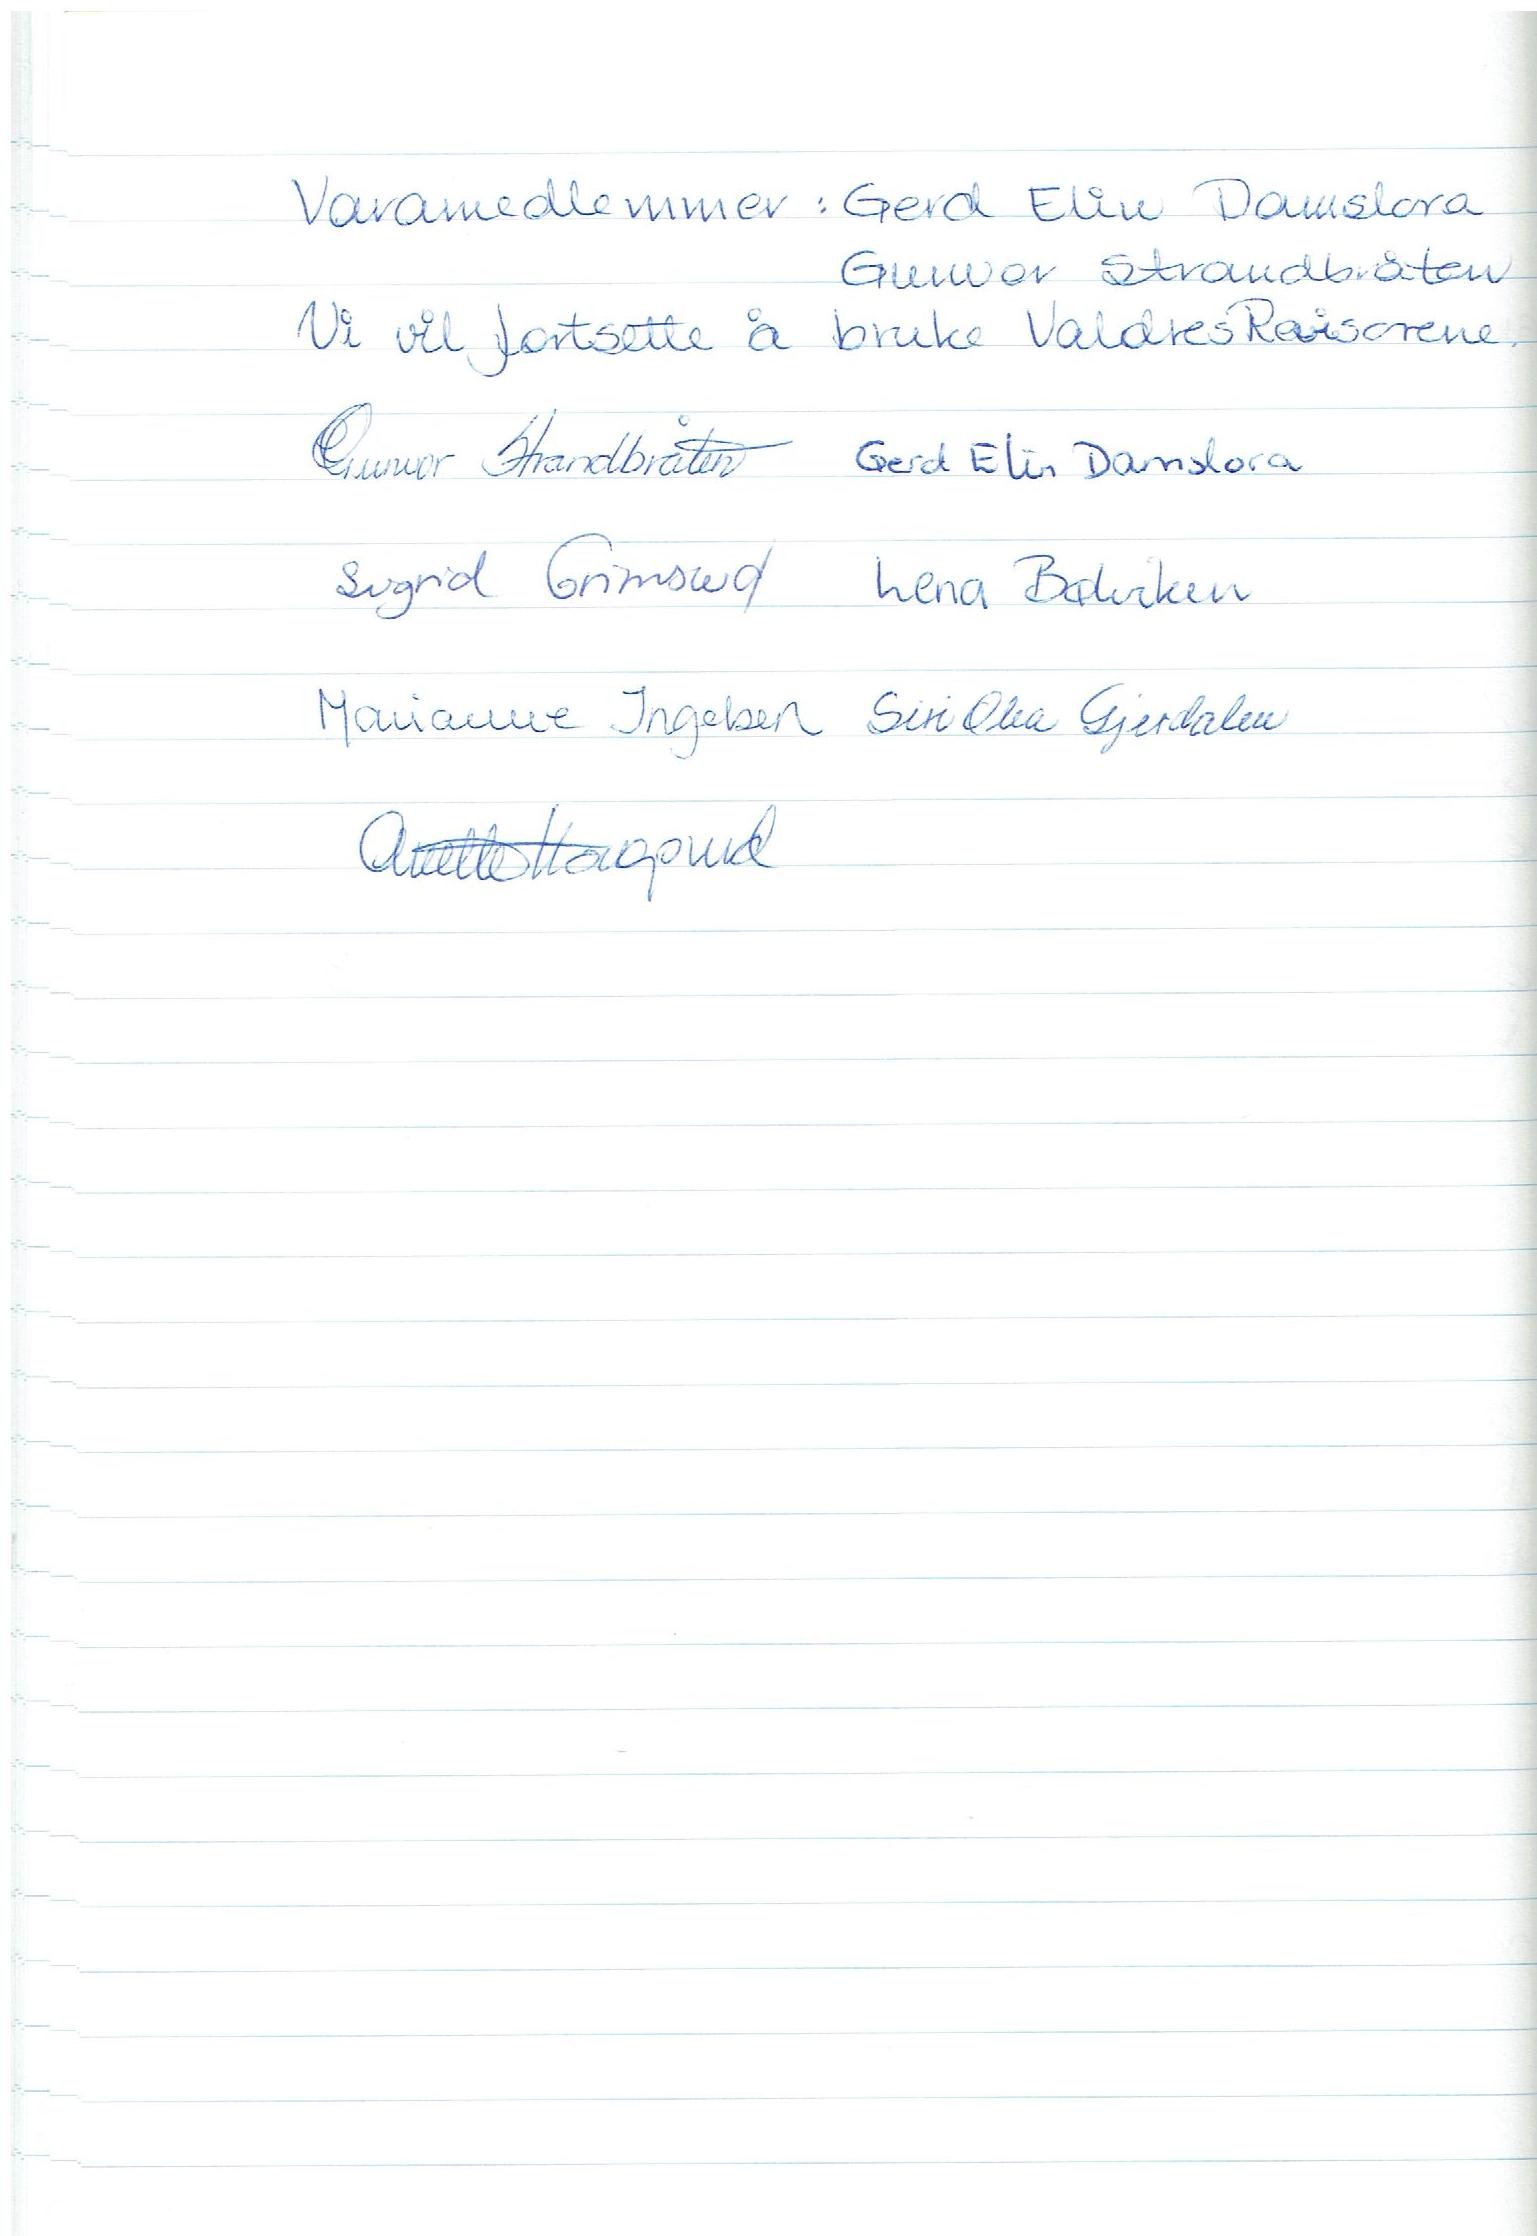 Varamedlemmer: Gerd Elin Damslora
Gunvor Strandbråten
Vi vil fortsette å bruke ValdresRevisorene.
Gunvor Strandbråten Gerd Elin Damslora
Sigrid Lena
Marianne Siri Gjerdalen
Anette